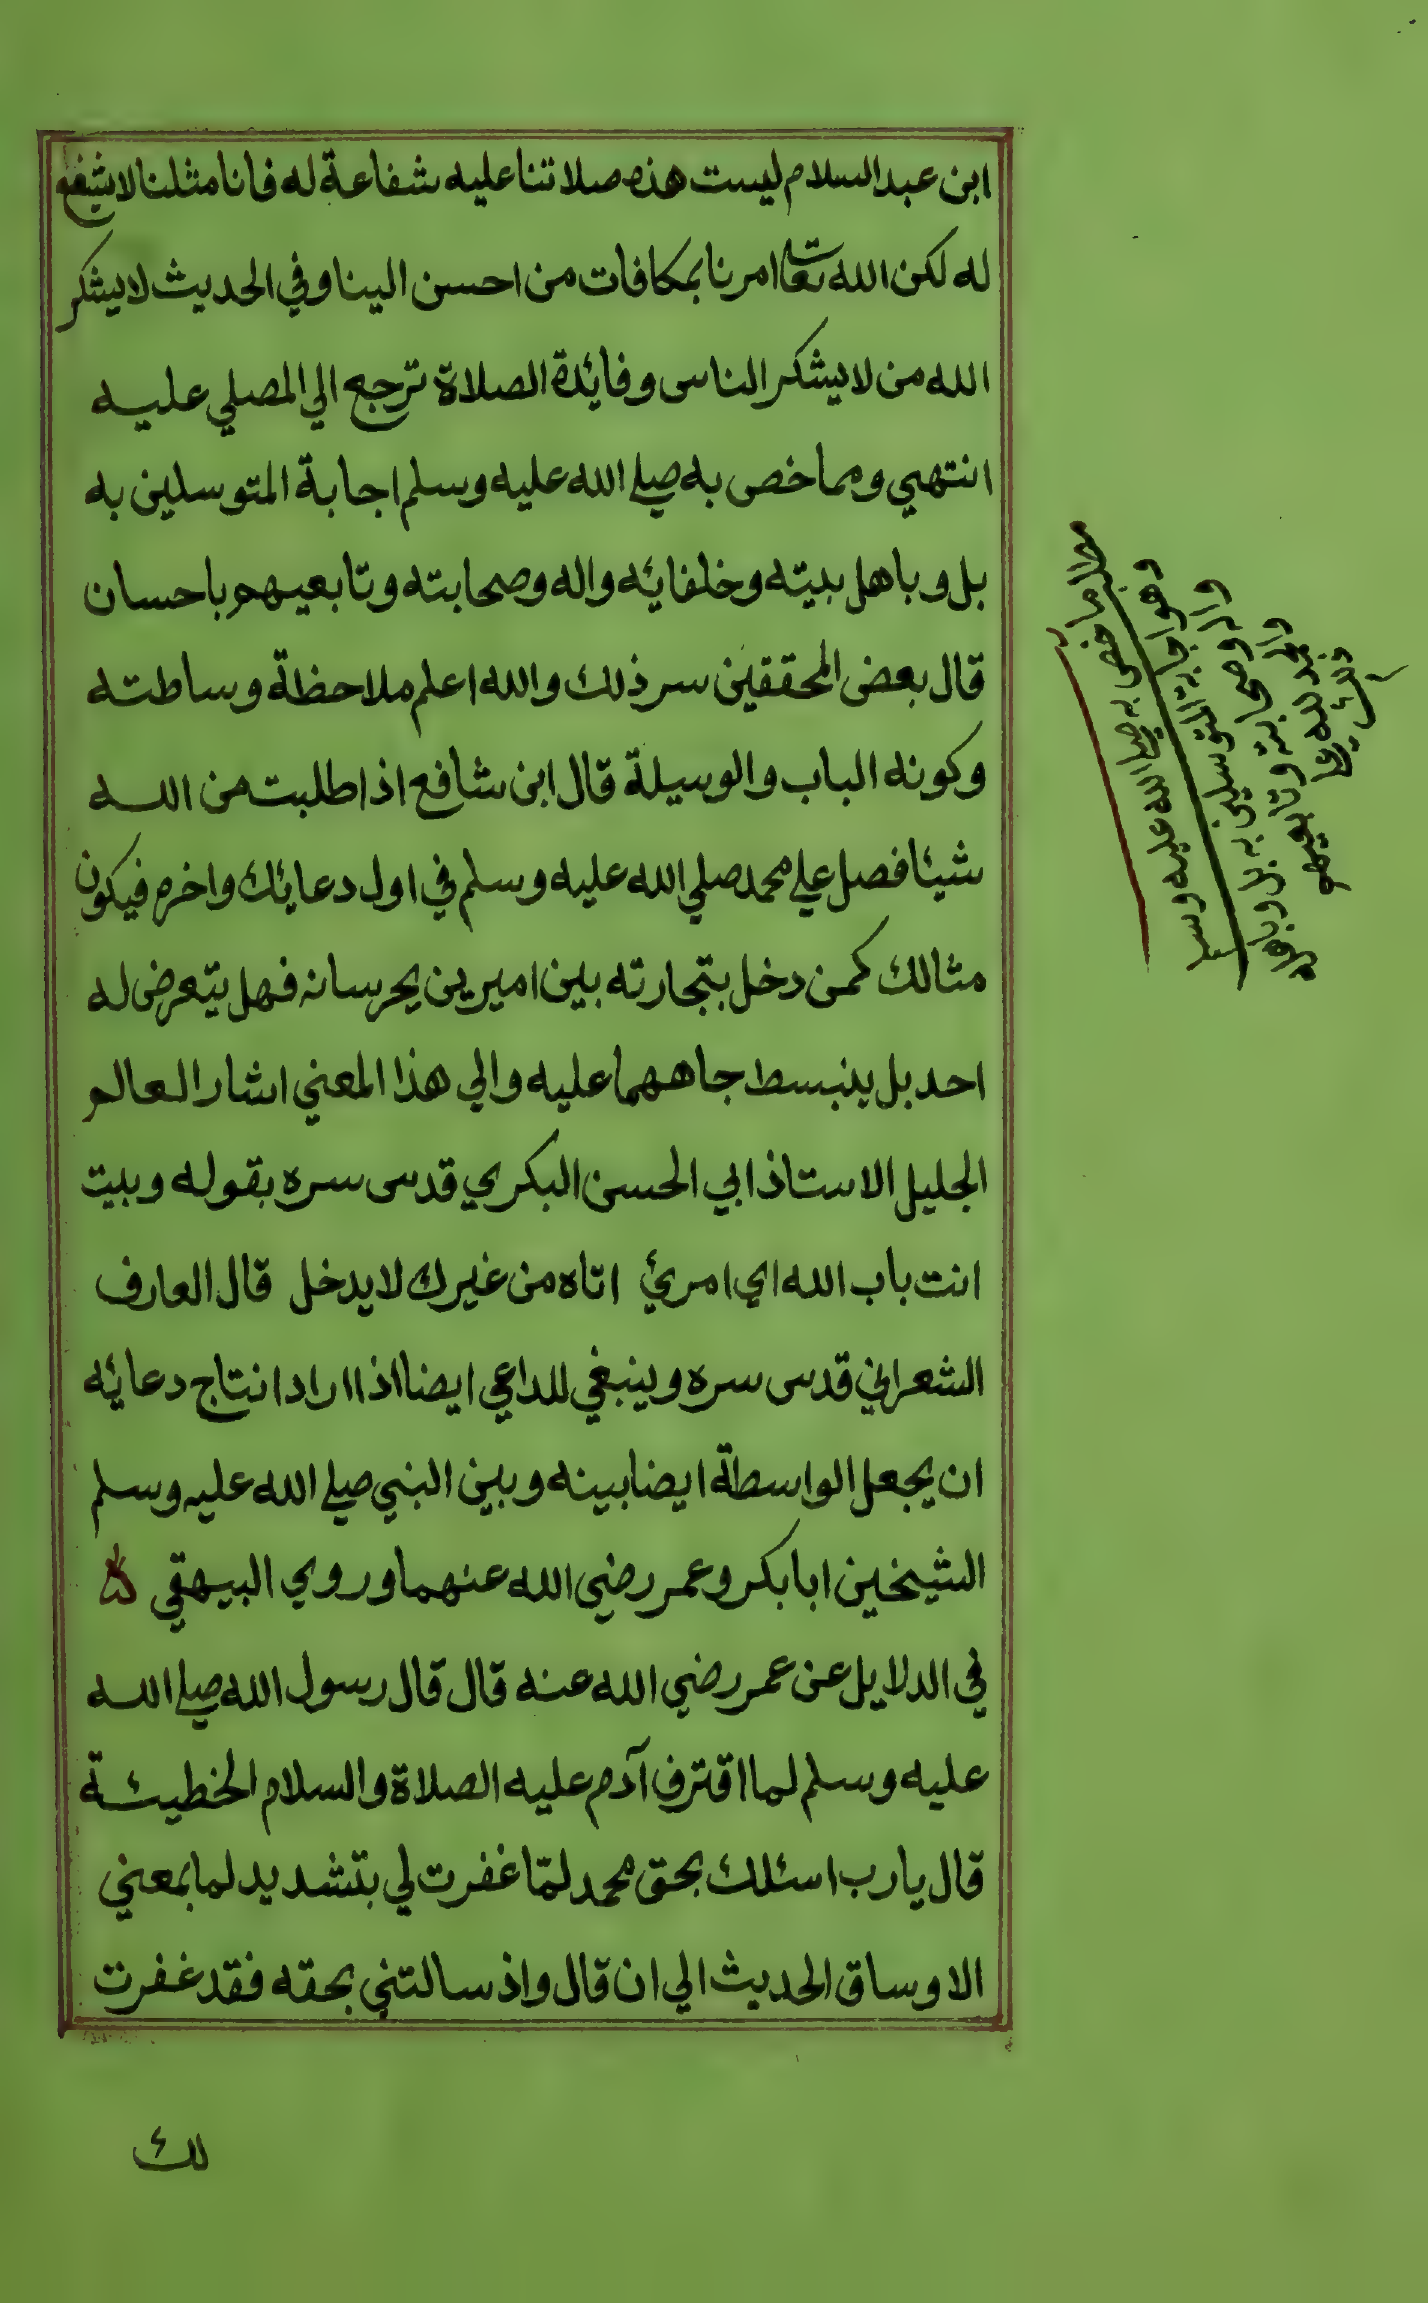 ابن عبد السلام ليست هذه صلاتنا عليه شفاعة له فانا مثلنا لا يشفع
له لكن الله تعا امرنا بمكافات من احسن الينا وفي الحديث لا يشكر
الله من لا يشكر الناس وفائدة الصلاة ترجع الي المصلي عليه
انتهي ومما خص به صلے الله عليه وسلم اجابة المتوسلين به
بل وباهل بيته وخلفائه واله وصحابته وتابعيهم باحسان
قال بعض المحققين سر ذلك والله اعلم ملاحظة وساطته
وكونه الباب والوسيلة قال ابن شافع اذا طلبت من الله
شيئا فصل علے محمد صلي الله عليه وسلم في اول دعائك واخره فيكون
مثالك كمن دخل بتجارته بين اميرين يحرسانه فهل يتعرض له
احد بل ينبسط جاههما عليه والي هذا المعني اشار العالم
الجليل الاستاذ ابي الحسن البكري قدس سره بقوله وبيت
انت باب الله اي امرئ اتاه من غيرك لا يدخل قال العارف
الشعراني قدس سره وينبغي للداعي ايضا اذا اراد انتاج دعائه
ان يجعل الواسطة ايضا بينه وبين النبي صلے الله عليه وسلم
الشيخين ابا بكر وعمر رضي الله عنهما وروي البيهقي
في الدلايل عن عمر رضي الله عنه قال قال رسول الله صلے الله
عليه وسلم لما اقترف آدم عليه الصلاة والسلام الخطيئة
قال يا رب اسئلك بحق محمد لمّا غفرت لي بتشديد لما بمعني
الا وساق الحديث الي ان قال واذ سالتني بحقه فقد غفرت
لك
مطلب ما خص به صلے الله عليه وسلم
وهو اجابة المتوسلين به بل وباهله
واله وصحابته وتابعيهم
والحمد لله علے
ذلك